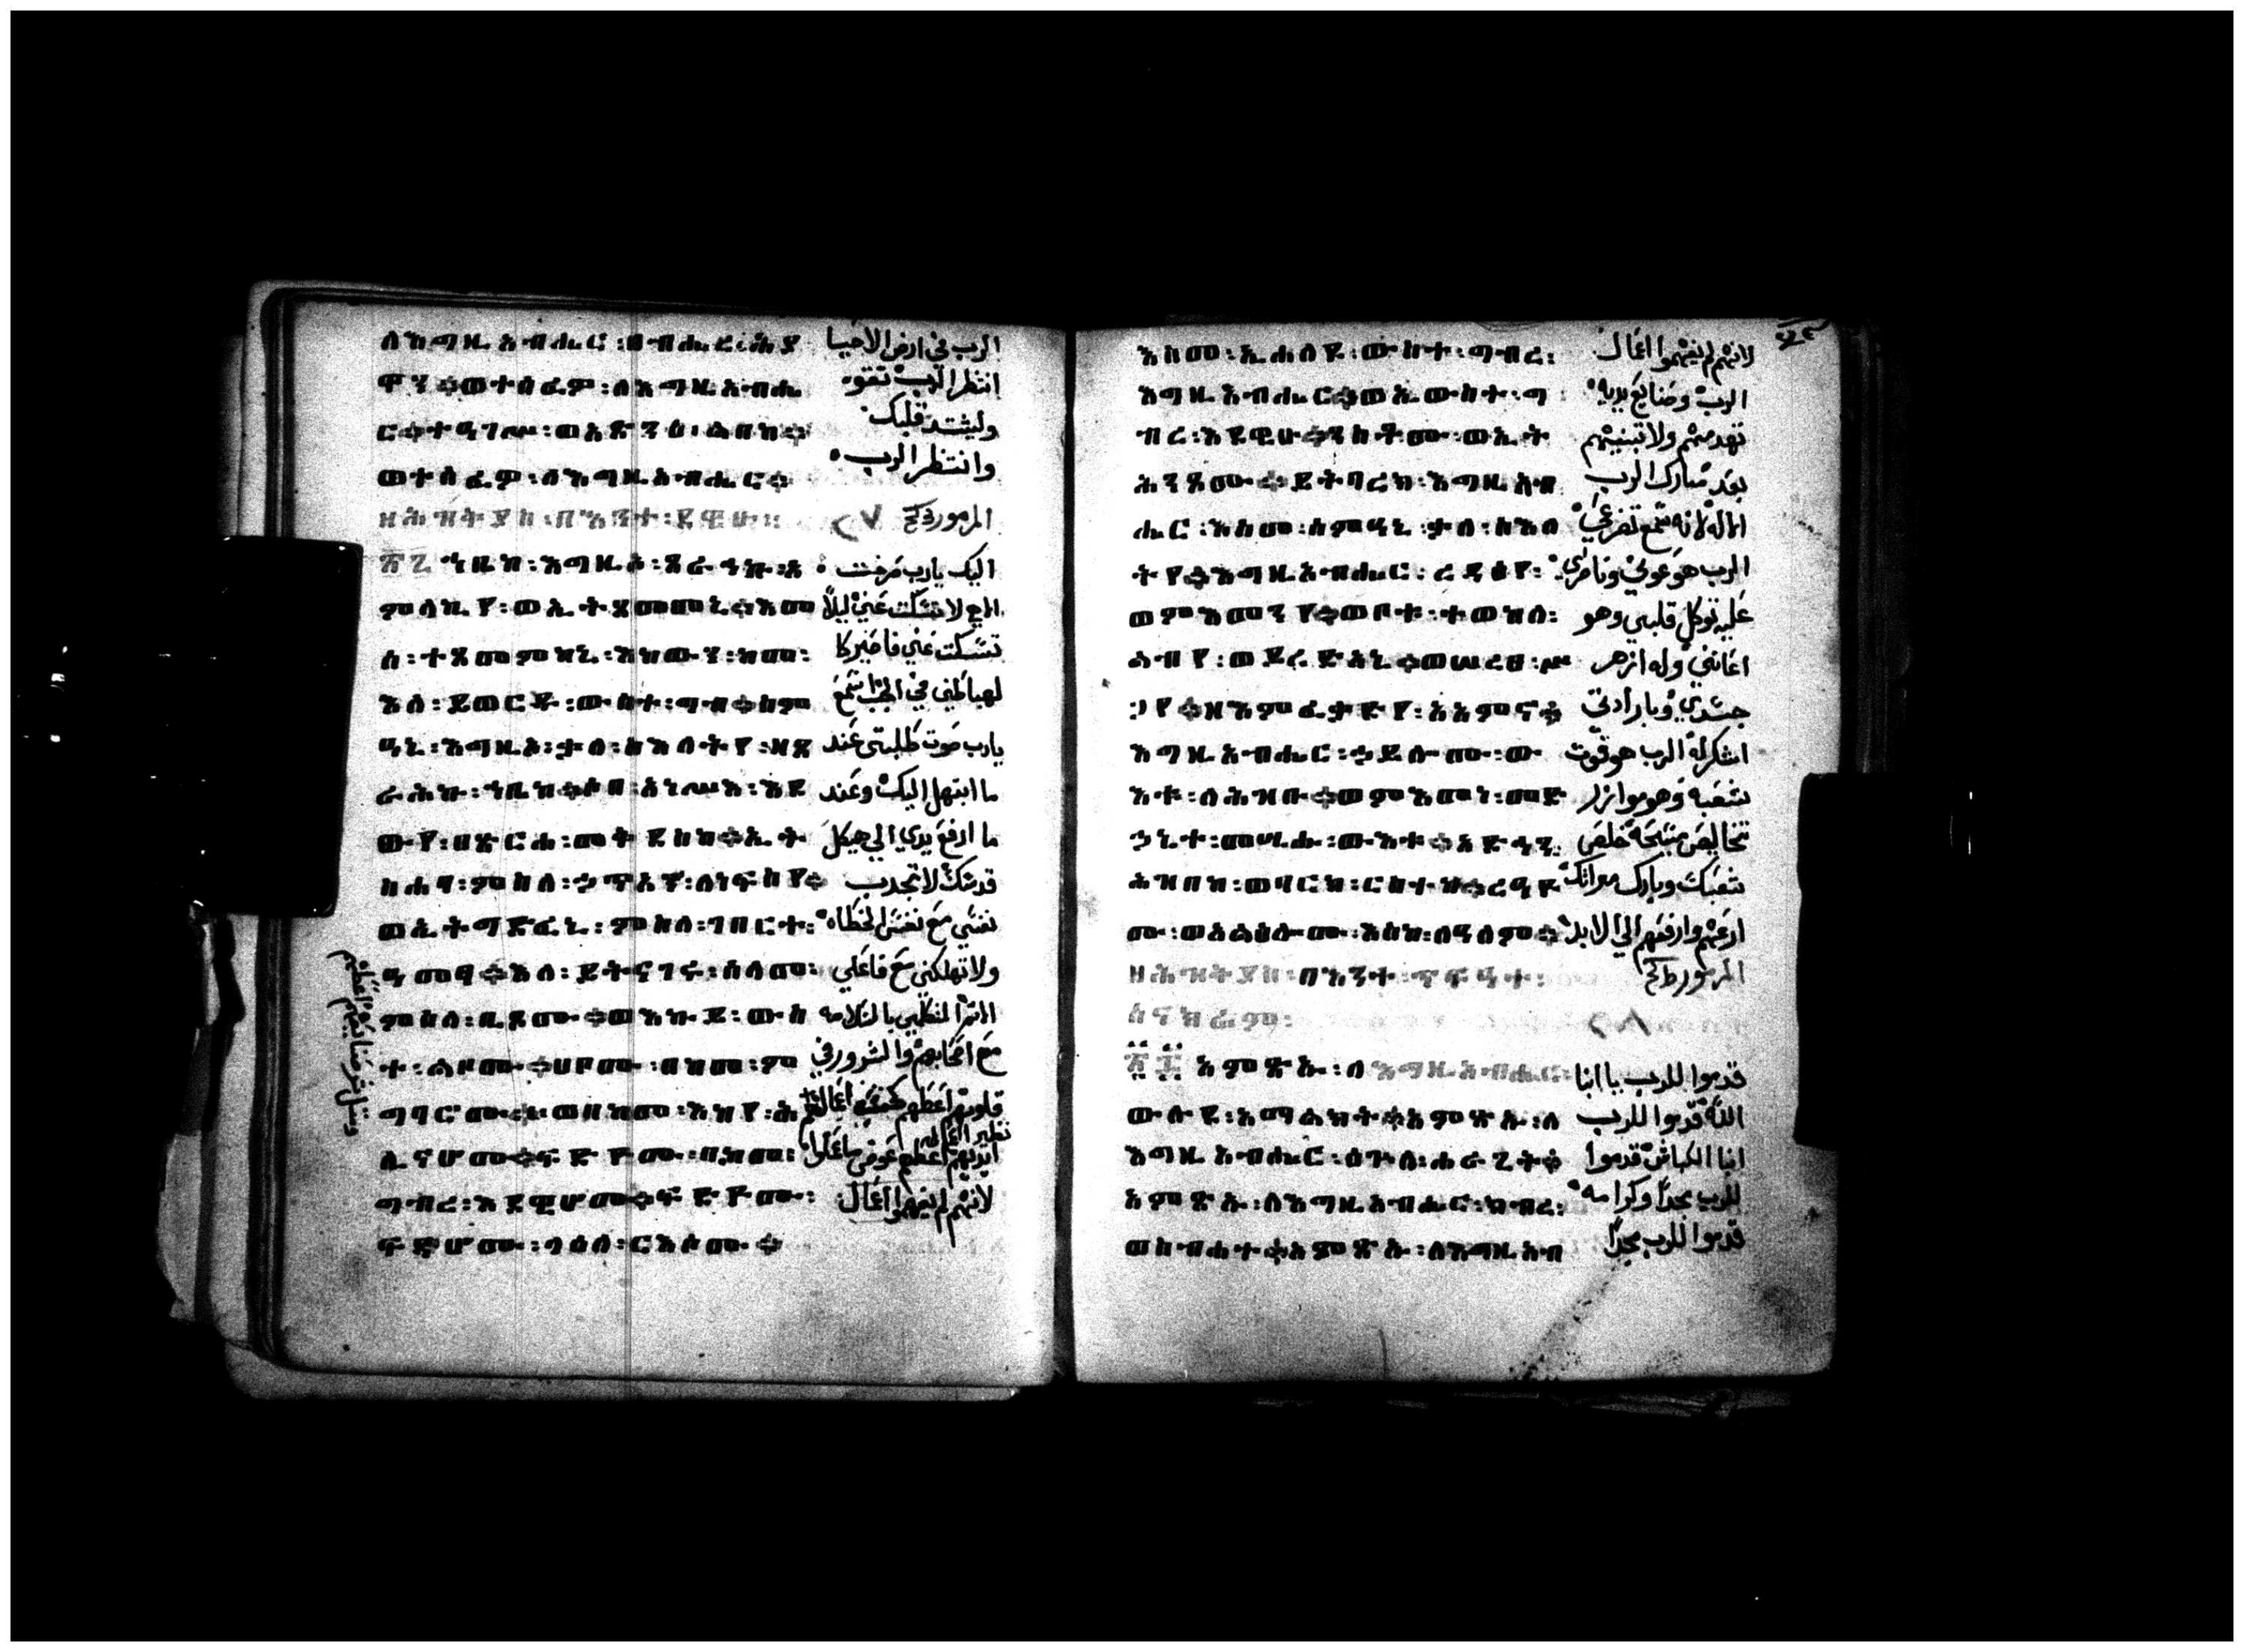 ለእግዚአብሔር፡በብሔረ፡ሕያ الرب في ارض الاحيا
ዋን፨ወተሰፈዎ፡ለእግዚአብሔ انتظر الرب تقو
ር፨ተዓገሥ፡ወአጽንዕ፡ልበከ፨ وليشتد قلبك
ወተሰፈዎ፡ለእግዚአብሔር፨ وانتظر الرب
ዘሕዝቅያስ፡በእንተ፡ደዌሁ፡ المزمور ٢٧
፳፯ ኀቤከ፡እግዚኦ፡ጸራኅኩ፡አ اليك يارب صرخت
ምላኪየ፡ወኢተጸመመኒ፨እመ الهي لا تسكت عني ليلا
ሰ፡ተጸመምከኒ፡እከውን፡ከመ፡ تسكت عني فاصير كا
እለ፡ይወርዱ፡ውስተ፡ግብ፨ስም لهباطين في الجب اسمع
ዓኒ፡እግዚኦ፡ቃለ፡ስእለትየ፡ዘጸ يارب صوت طلبتي عند
ራሕኩ፡ኀቤከ፨ሶበ፡አነሥእ፡እደ ما ابتهل اليك وعند
ውየ፡በጽርሐ፡መቅደስከ፨ኢት ما ارفع يدي الي هيكل
ክሐባ፡ምስለ፡ኃጥኣን፡ለነፍስየ፨ قدسك لا تجدب
ወኢትግድፈኒ፡ምስለ፡ገበርተ፡ نفسي مع نفس الخطاه
ዓመፃ፨እለ፡ይትናገሩ፡ሰላመ፡ ولا تهلكني مع فاعلي
ምስለ፡ቢጾሙ፨ወእኩይ፡ውስ بالسلامه
ተ፡ልቦሙ፨ሀቦሙ፡በከመ፡ም مع اصحابهم والشرور في
ግባሮሙ፨ወበከመ፡እከየ፡ሕ قلوبهم اعطهم اعمالهم
ሊናሆሙ፨ፍድዮሙ፡በከመ፡ ايديهم اعطهم عوض ما عملوا
ግብረ፡እደዊሆሙ፨ፍድዮሙ፡ لانهم لم يفهموا اعمال
ፍዳሆሙ፡ላዕለ፡ርእሶሙ፨
እስመ፡ኢሐለዩ፡ውስተ፡ግብረ፡ لانهم لم يفهموا اعمال
እግዚአብሔር፨ወኢውስተ፡ግ الرب وصنايع يديه
ብረ፡እደዊሁ፨ንስቶሙ፡ወኢት تهدمهم ولا تبنيهم
ሕንጾሙ፨ይትባረክ፡እግዚአብ بعد مبارك الرب
ሔር፡እስመ፡ሰምዓኒ፡ቃለ፡ስእለ الاله لانه سمع تضرعي
ትየ፨እግዚአብሔር፡ረዳእየ፡ الرب هو عوني وناصري
ወምእመንየ፨ወቦቱ፡ተወከለ፡ عليه توكل قلبي وهو
ልብየ፡ወይረድአኒ፨ወሠረፀ፡ሥ اعانني وله ازهر
ጋየ፨ዘእምፈቃድየ፡አአምኖ፨ جسدي وبارادتي
እግዚአብሔር፡ኃይሎሙ፡ው اشكر له الرب هو قوت
እቱ፡ለሕዝቡ፨ወምእመነ፡መድ شعبه وهو موازر
ኃኒተ፡መሢሑ፡ውእቱ፨አድኅን፡ تخاليص مسيحه خلص
ሕዝበከ፡ወባርክ፡ርስተከ፨ረዓዮ شعبك وبارك ميراثك
ሙ፡ወአልዕሎሙ፡እስከ፡ለዓለም፨ ارعهم وارفعهم الي الابد
ዘሕዝቅያስ፡በእንተ፡ጥፍዓተ፡ المزمور
ሰናክሬም፡ ٢٨
፳፰ አምጽኡ፡ለእግዚአብሔር፡ قدموا للرب يا ابنا
ውሉደ፡አማልክት፨አምጽኡ፡ለ الله قدموا للرب
እግዚአብሔር፡ዕጕለ፡ሐራጊት፨ ابنا الكباش قدموا
አምጽኡ፡ለእግዚአብሔር፡ክብረ፡ للرب مجدا وكرامه
ወስብሐተ፨አምጽኡ፡ለእግዚአብ قدموا للرب مجدا